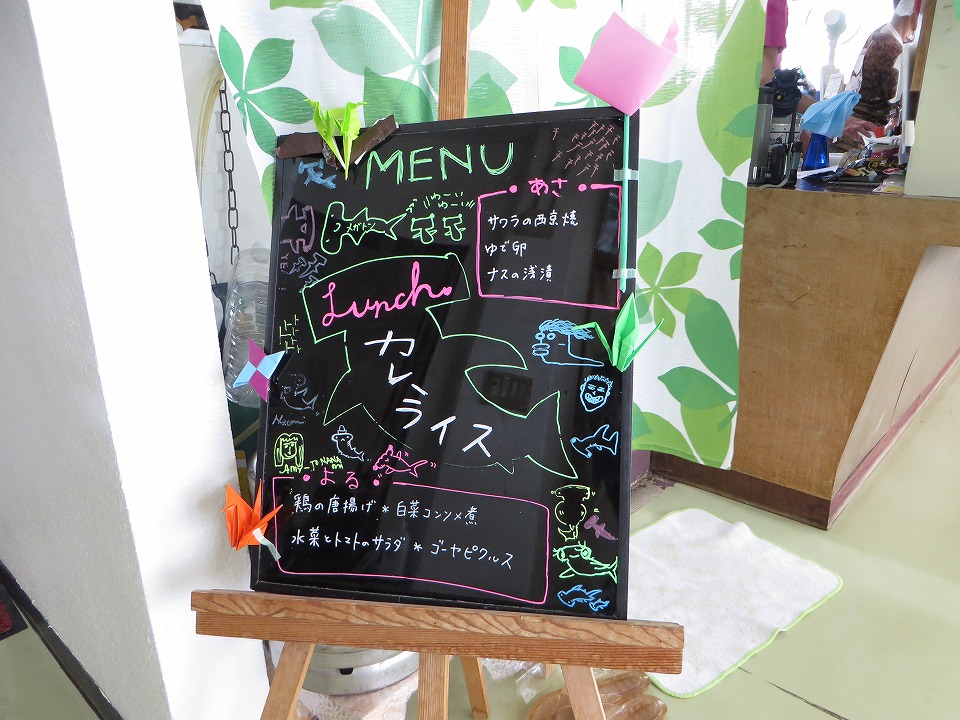 MENU
メガトン
あさ
サワラの西京焼
ゆで卵
ナスの浅漬
Lunch.
カレーライス
AMY-
よる
鶏の唐揚げ * 白菜コンソメ煮
水菜とトマトのサラダ * ゴーヤピクルス